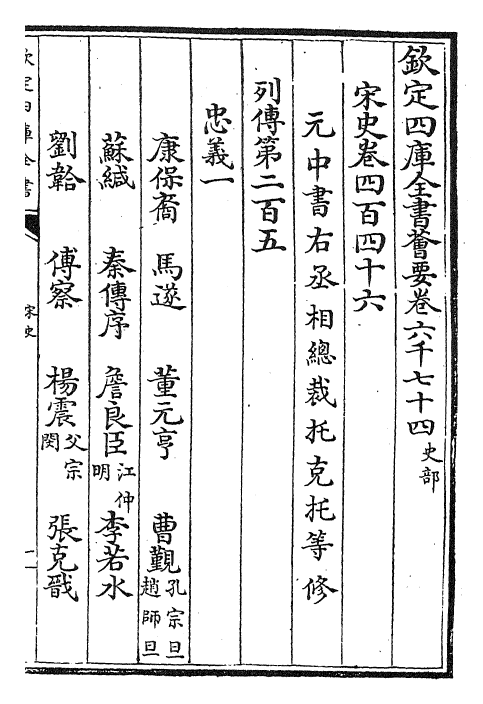 欽定四庫全書薈要卷六千七十四 史部
宋史卷四百四十六
元中書右丞相總裁托克托等修
列傳第二百五
忠義一
康保裔 馬遂 董元亨 曹覲 孔宗旦 趙師旦
蘇緘 秦傳序 詹良臣 江仲明 李若水
劉韐 傅察 楊震 父宗閔 張克戩
欽定四庫全書
宋史